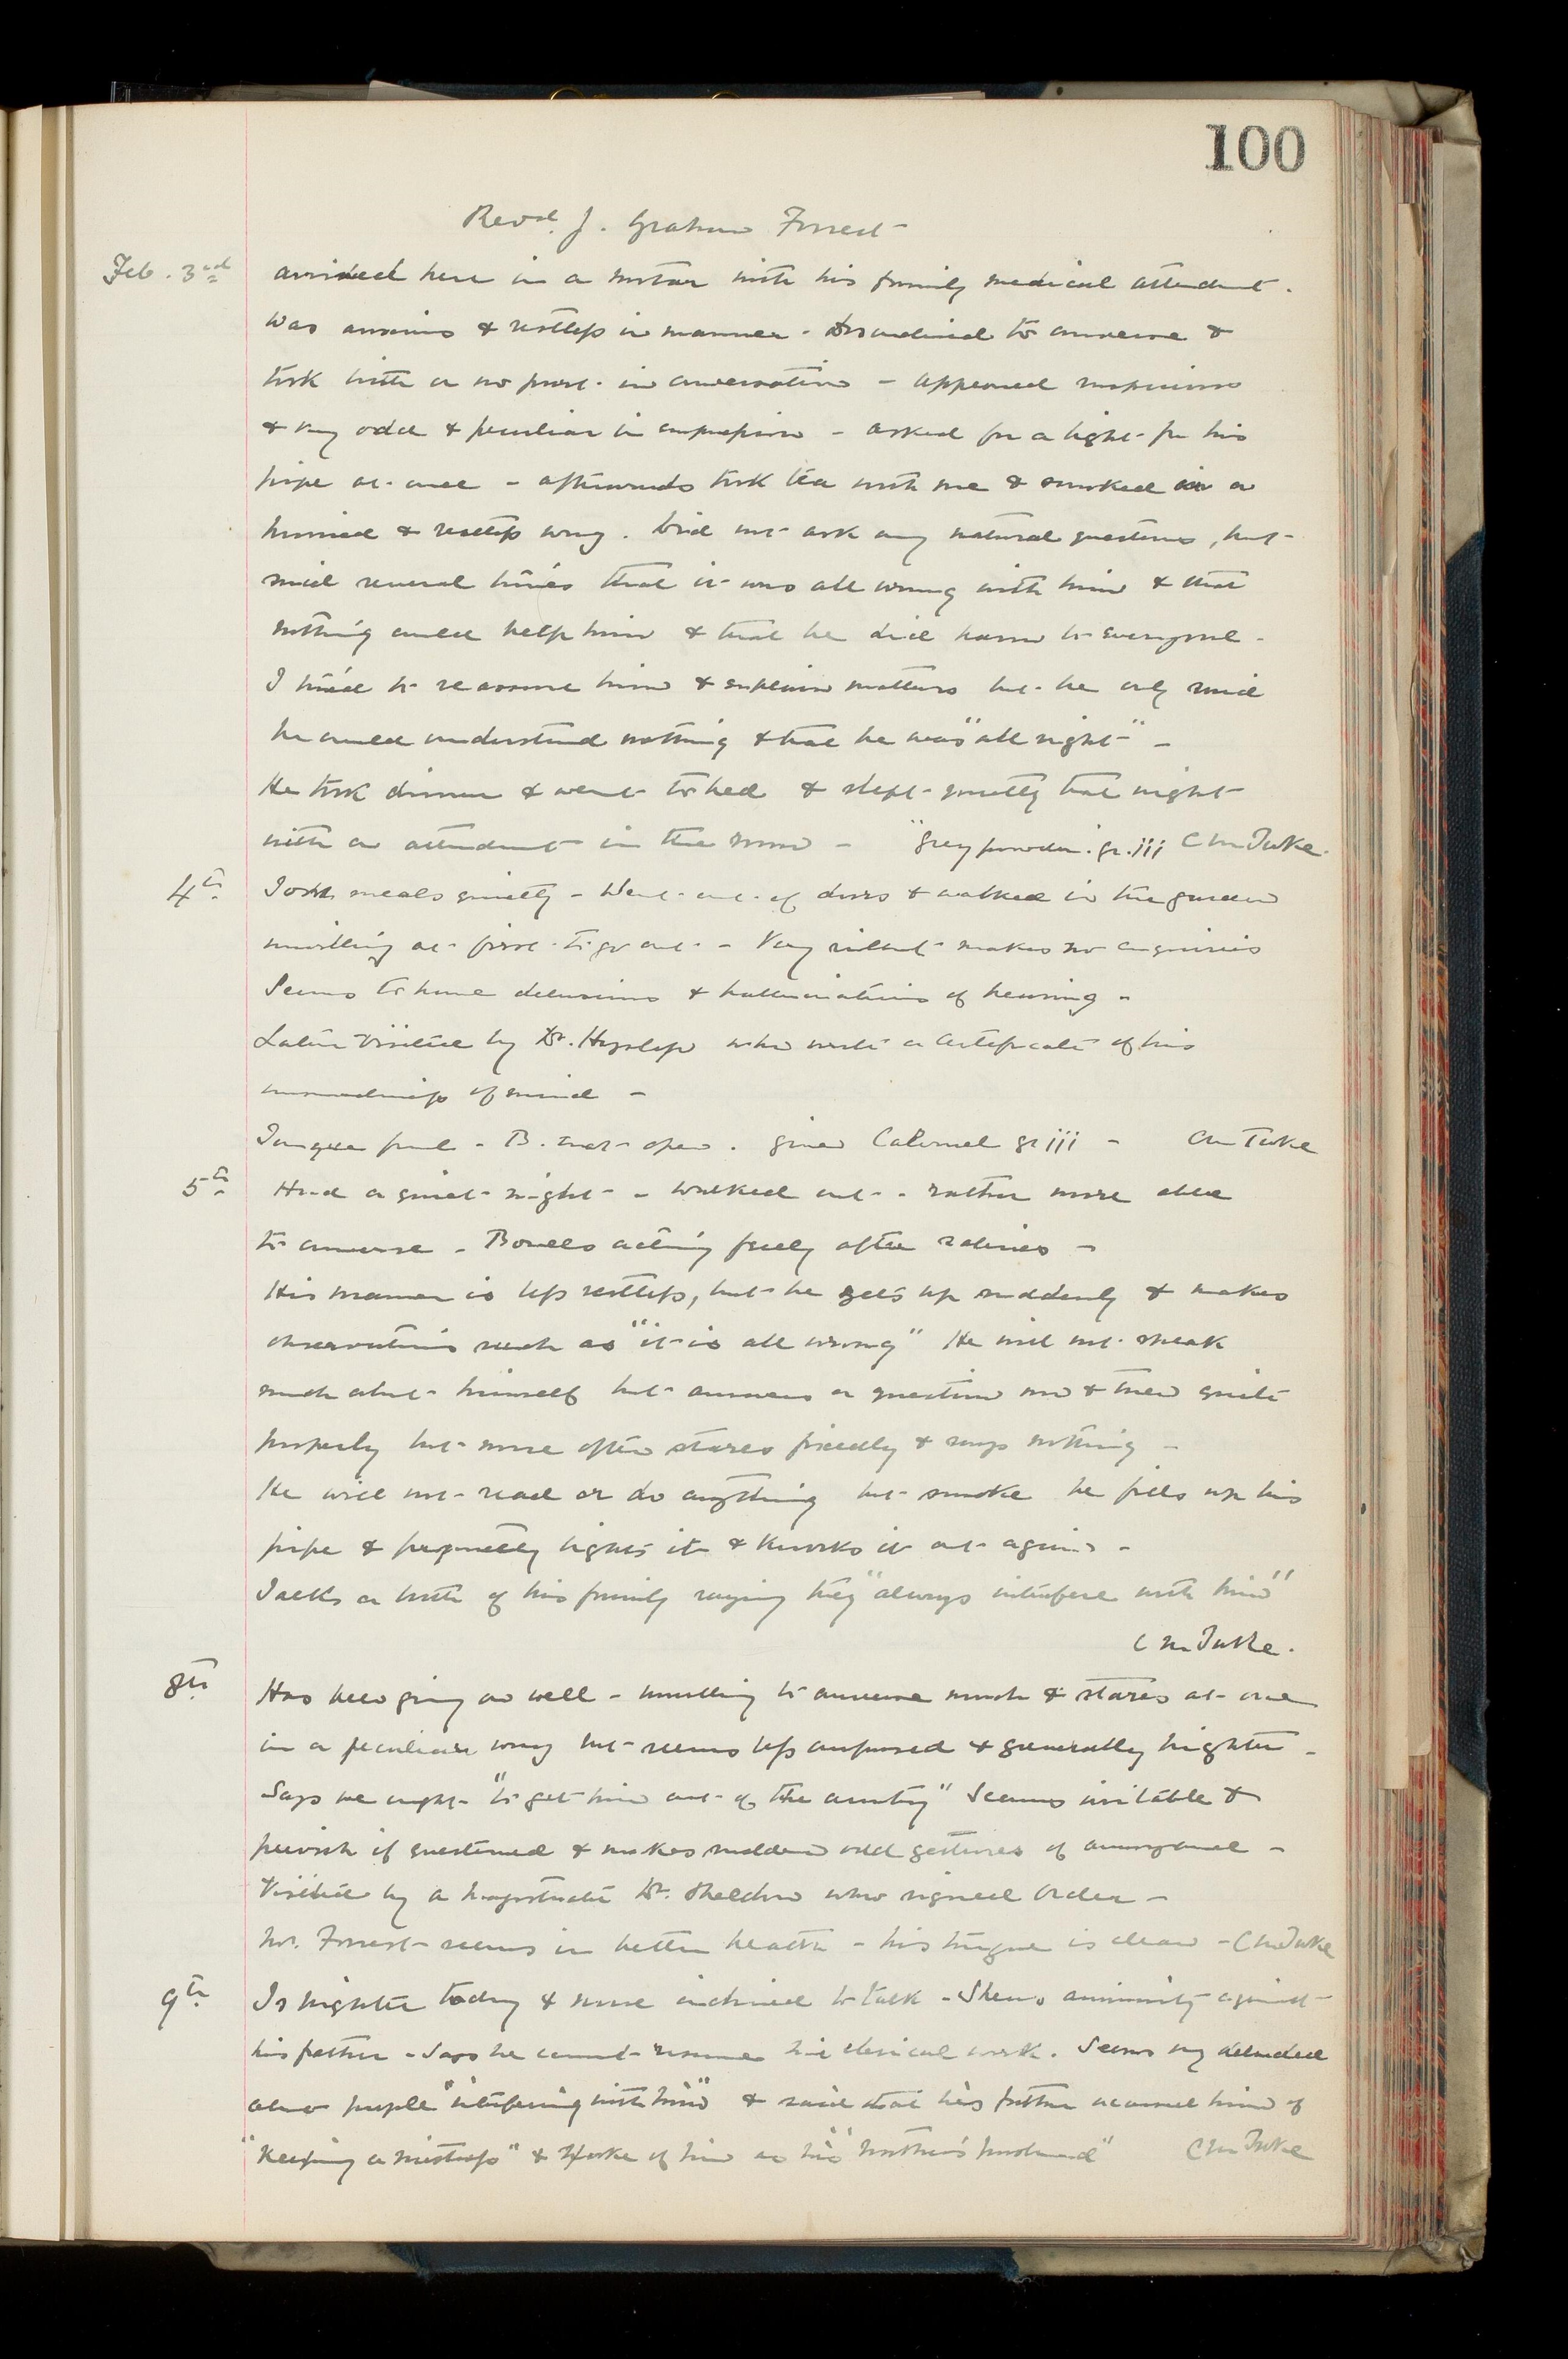 100
Revd. J. Graham Forrest
Feb. 3rd arrived here in a motor with his family medical attendant.
Was anxious & restless in manner - disinclined to converse &
took little or no part in conversation - appeared suspicious
& very odd & peculiar in expression - asked for a light for his
pipe at once - afterwards took tea with me & smoked in a
hurried & restless way. Did not ask any natural questions, but
said several times that it was all wrong with him & that
nothing could help him & that he did harm to everyone -
I tried to reassure him & explain matters but he only said
he could understand nothing & that he was "all right" -
He took dinner & went to bed & slept quietly that night
with an attendant in the room - "grey powder. gr. iii C M Tuke.
4th. Took meals quietly - Went out of doors & walked in the garden
unwilling at first to go out - Very silent makes no enquiries
Seems to have delusions & hallucinations of hearing -
Later visited by Dr. Hyslop who wrote a certificate of his
unsoundness of mind -
Tongue foul - B. not open. given Calomel gr iii - CM Tuke
5th. Had a quiet night - walked out - rather more able
to converse - Bowels acting freely after salines -
His manner is less restless, but he gets up suddenly & makes
observations such as "it is all wrong" He will not speak
much about himself but answers a question now & then quite
properly but more often stares fixedly & says nothing -
He will not read or do anything but smoke he fills up his
pipe & frequently lights it & knocks it out again -
Talks a little of his family saying they "always interfere with him"
C M Tuke.
8th. Has been going on well - unwilling to converse much & stares at one
in a peculiar way but seems less confused & generally brighter -
Says we ought "to get him out of the country" Seems irritable &
peevish if questioned & makes sudden odd gestures of annoyance -
Visited by a Magistrate Dr. Sheldon who signed Order -
Mr. Forrest seems in better health - his tongue is clean - C M Tuke
9th. Is brighter today & more inclined to talk - Shews animosity against
his father - Says he cannot resume his clerical work. Seems very deluded
about people "interfering with him" & said that his father accused him of
"keeping a mistress" & spoke of him as his "mother's husband" C M Tuke